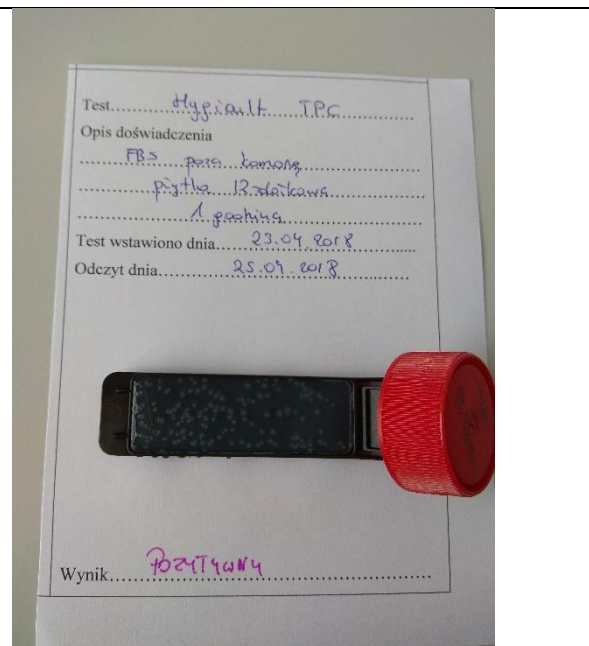 Test....Hygicult TPC....
Opis doświadczenia
....FBS poza komorą....
....płytka 12-dołkowa....
....1 godzina....
Test wstawiono dnia....23.04.2018....
Odczyt dnia....25.04.2018....
Wynik....POZYTYWNY....